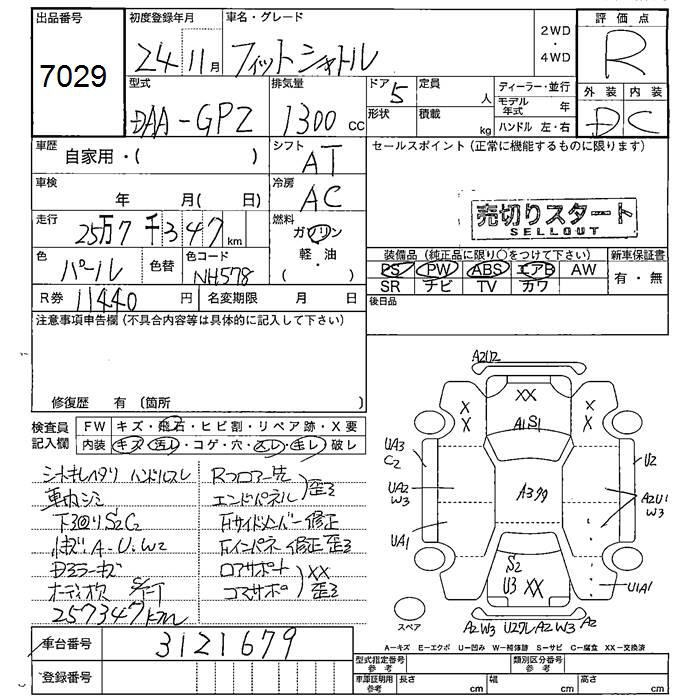 出品番号
7029
初度登録年月
24 11月
車名・グレード
フィットシャトル
2WD
・
4WD
評価点
R
型式
DAA-GP2
排気量
1300 cc
ドア
5
形状
定員
人
積載
kg
ディーラー・並行
モデル年式 年
ハンドル 左・右
外装 内装
D C
車歴
自家用・( )
シフト
AT
車検
年 月( 日)
冷房
AC
走行
25万7千347km
燃料
ガソリン
軽・油
( )
色
パール
色替
色コード
NH578
R券 11440 円
名変期限 月 日
セールスポイント(正常に機能するものに限ります)
売切りスタート
SELLOUT
装備品(純正品に限り○をつけて下さい)
新車保証書
PS PW ABS エアB AW
有・無
SR ナビ TV カワ
後日品
注意事項申告欄(不具合内容等は具体的に記入して下さい)
修復歴 有 (箇所 )
検査員
記入欄
FW キズ・飛石・ヒビ割・リペア跡・X要
内装 キズ・汚レ・コゲ・穴・スレ・モレ・破レ
シートキレ ハンドルスレ
車内シミ
下廻りS2C2
A・U・W2
ドアミラーキズ
オーディオ欠
257347km
Rフロアー先
エンドパネル 歪ミ
右サイドメンバー修正
右インパネ修正歪ミ
ロアサポート XX
コアサポ 歪ミ
A2U2
XX
X
X
X
X
A1S1
UA3
C2
UA2
W3
UA1
A3
U2
A2U1
W3
S2
U3 XX
U1A1
スペア
A2W3 A2W3 A2
A-キズ E-エクボ U-凹み W-補修跡 S-サビ C-腐食 XX-交換済
車台番号
3121679
登録番号
型式指定番号
参考
類別区分番号
参考
車庫証明用
参考
長さ cm
幅 cm
高さ cm